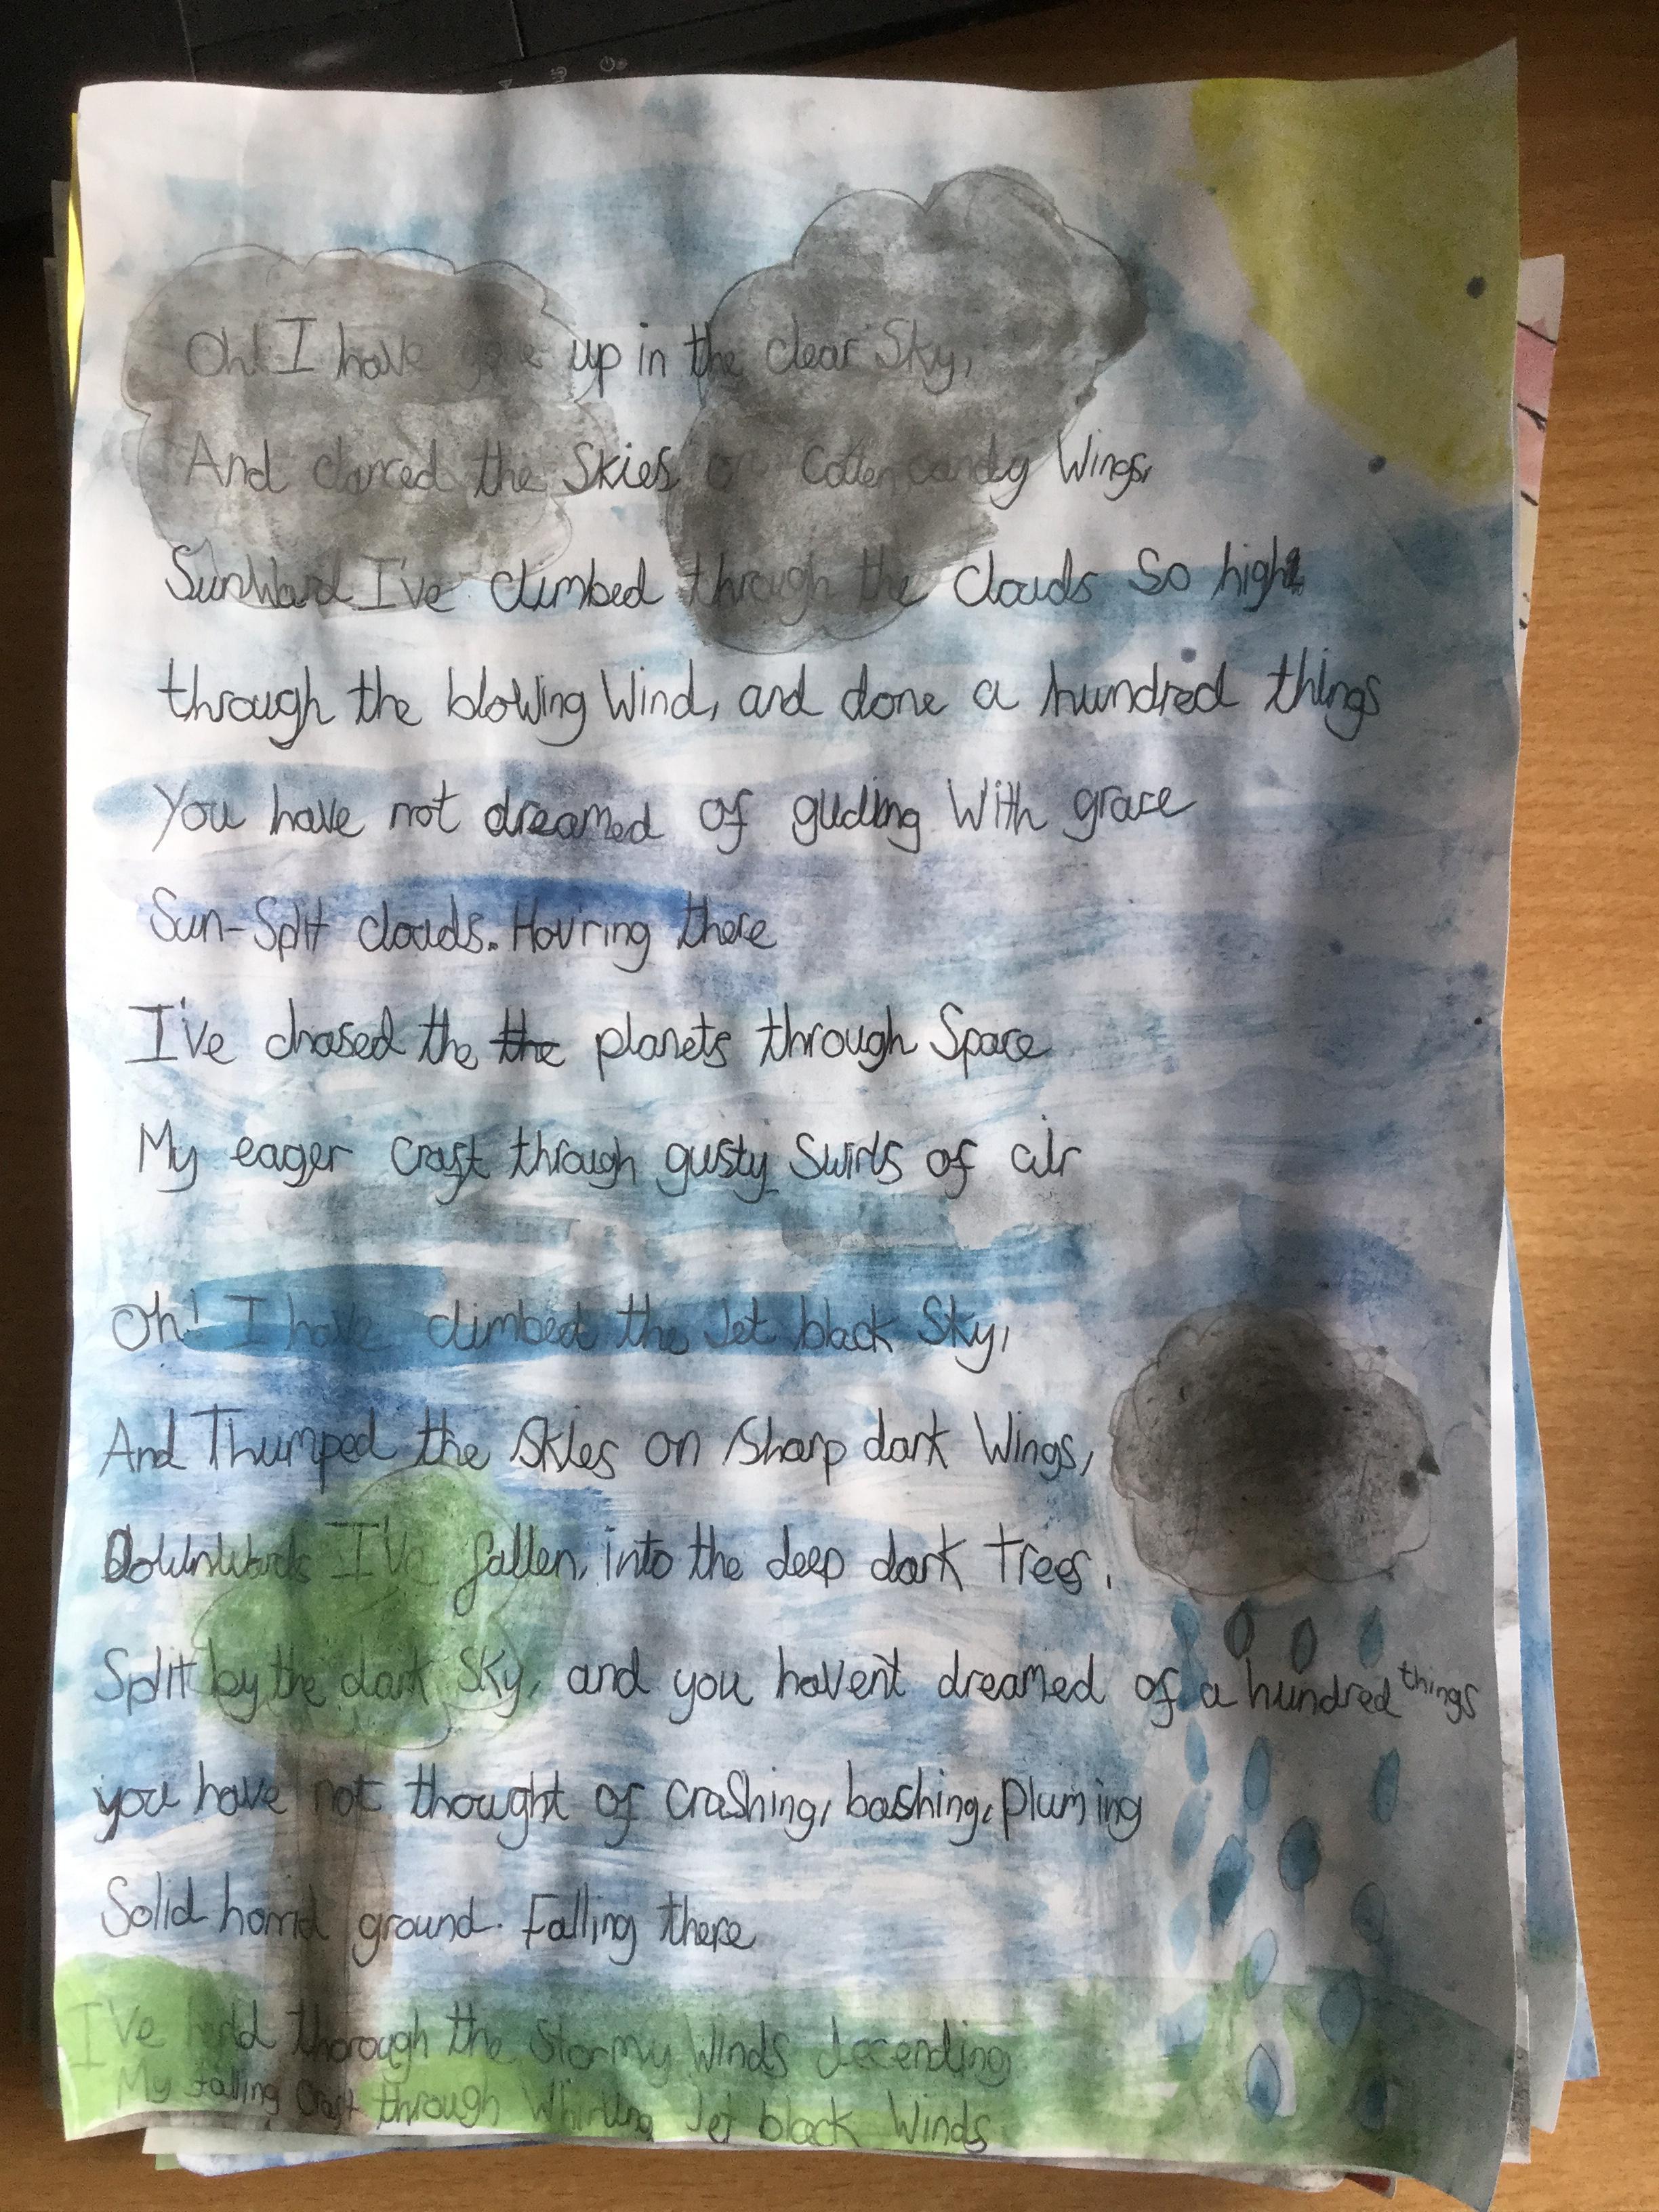 Oh! I have gone up in the clear Sky,
And danced the Skies on Cotten candy Wings,
SunWard I've climbed through the clouds So high
through the blowing Wind, and done a hundred things
You have not dreamed of gliding With grace
Sun-Split clouds. Hov'ring there
I've chased the the planets through Space
My eager craft through gusty Swirls of air
Oh! I have climbed the Jet black Sky,
And Thumped the Skies on Sharp dark Wings,
DownWards I've fallen, into the deep dark Trees,
Split by the dark Sky, and you havent dreamed of a hundred things
you have not thought of crashing, bashing, pluming
Solid horrid ground. Falling there
I've thorough the Stormy Winds decending
My Falling Craft through Whirling Jet black Winds